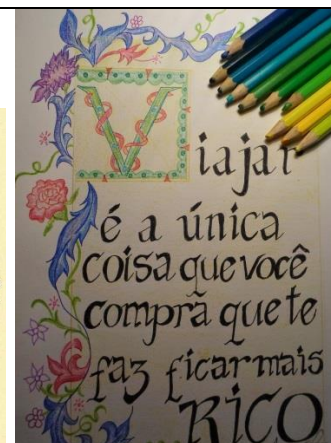 Viajar
é a única
coisa que você
comprã que te
faz ficar mais
RICO